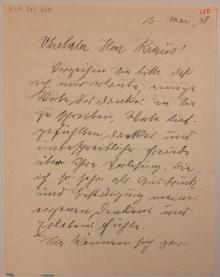 15. Mai, 38
Verehrter Herr Kraus!
Verzeihen Sie bitte, daß
ich mir erlaube, einige
Worte des Dankes an Sie
zu schreiben, Worte tief-
gefühlten Dankes und
unbeschreiblicher Freude
über Ihre Vorlesung, die
ich so sehr als Ausdruck
und Bestätigung meines
eigenen Denkens und
Erlebens fühle.
Sie können sich gar